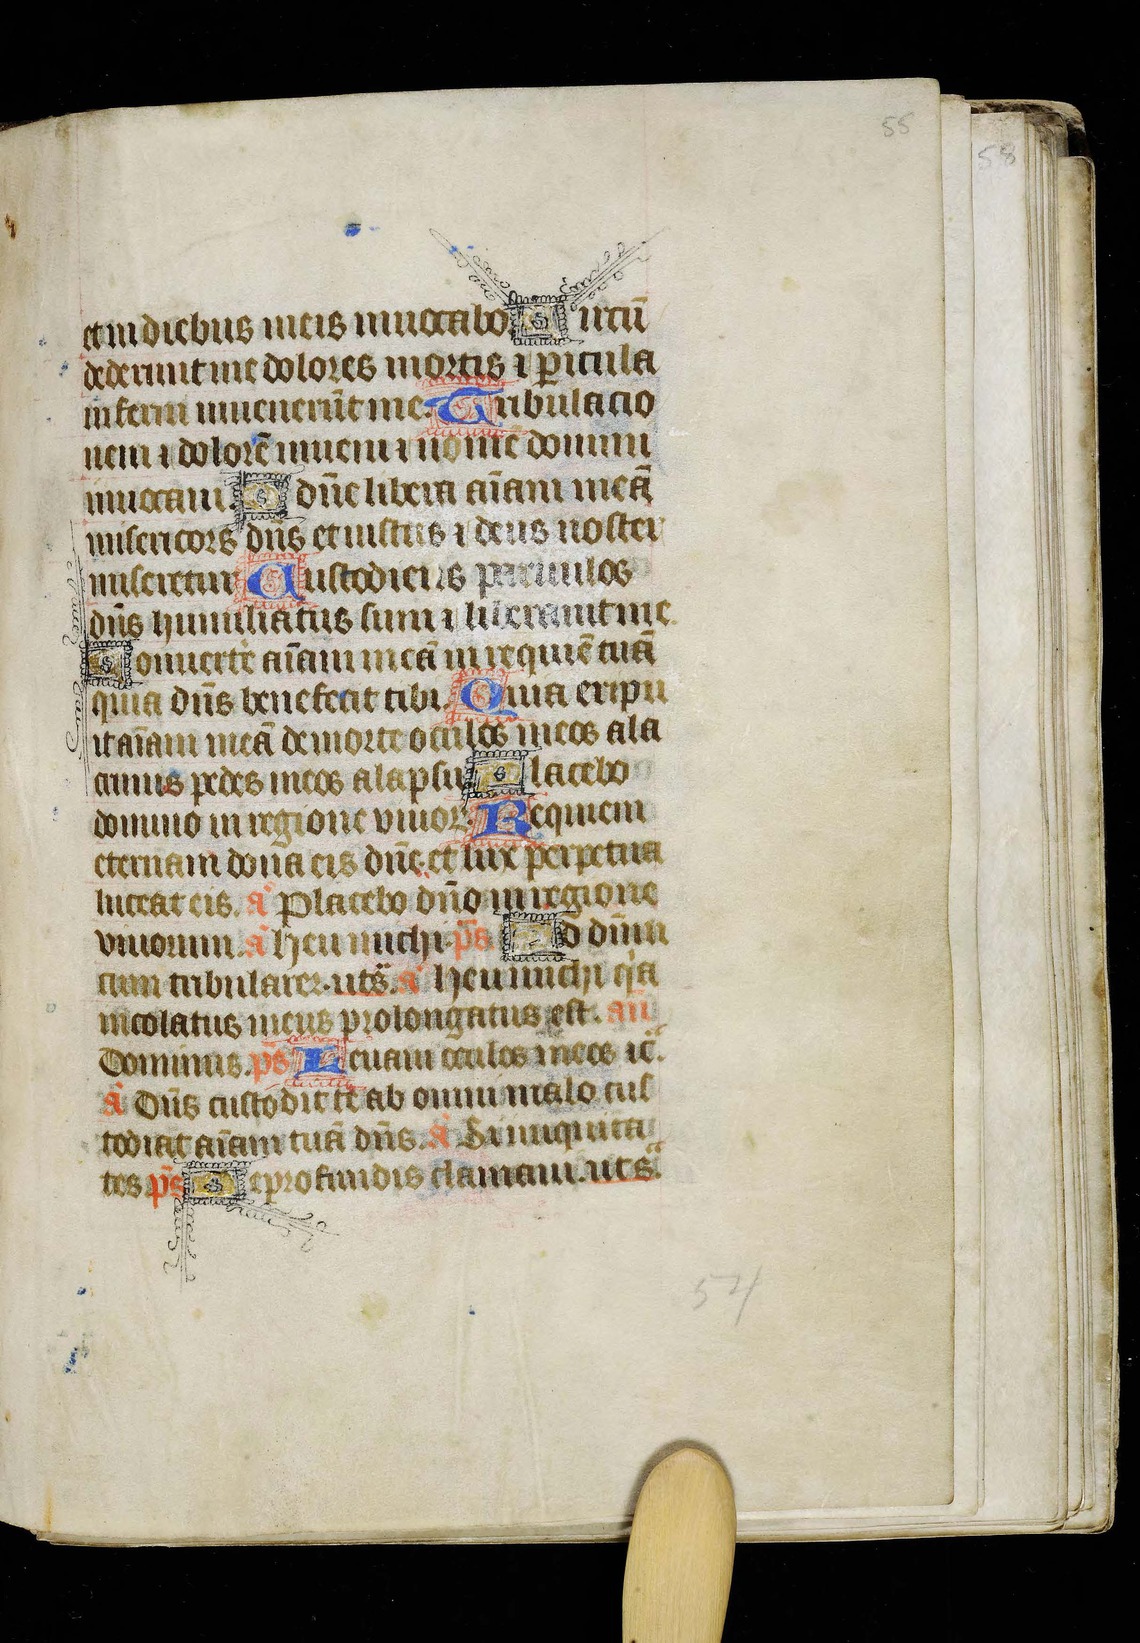 55
58
et in diebus meis inuocabo Circũ
dederunt me dolores mortis ⁊ p̲icula
inferni inuenerũt me. Tribulacio
nem ⁊ dolorẽ inueni ⁊ nomẽ domini
inuocaui. O dñe libera aĩam meã
misericors dñs et iustus ⁊ deus noster
miseretur Custodiens paruulos
dñs humiliatus sum ⁊ liberauit me.
Conuerte aĩam meã in requiẽ tuã
quia dñs benefecit tibi. Quia eripu
it aĩam meã de morte oculos meos a la
crimis pedes meos a lapsu Placebo
domino in regione viuoꝝ. Requiem
eternam dona eis dñe. et lux perpetua
luceat eis. a͛ Placebo dño in regione
viuorum. a͛ heu michi. p̃s Ad dñm
cum tribularer. ut s̃. a͛ heu michi q̓a
incolatus meus prolongatus est. añ
Dominus. p̃s Leuaui oculos meos ⁊c̃.
a͛ Dñs custodit te ab omni malo cus
todiat aĩam tuã dñs. a͛ Si iniquita
tes p̃s De profundis clamaui. ut s̃.
54